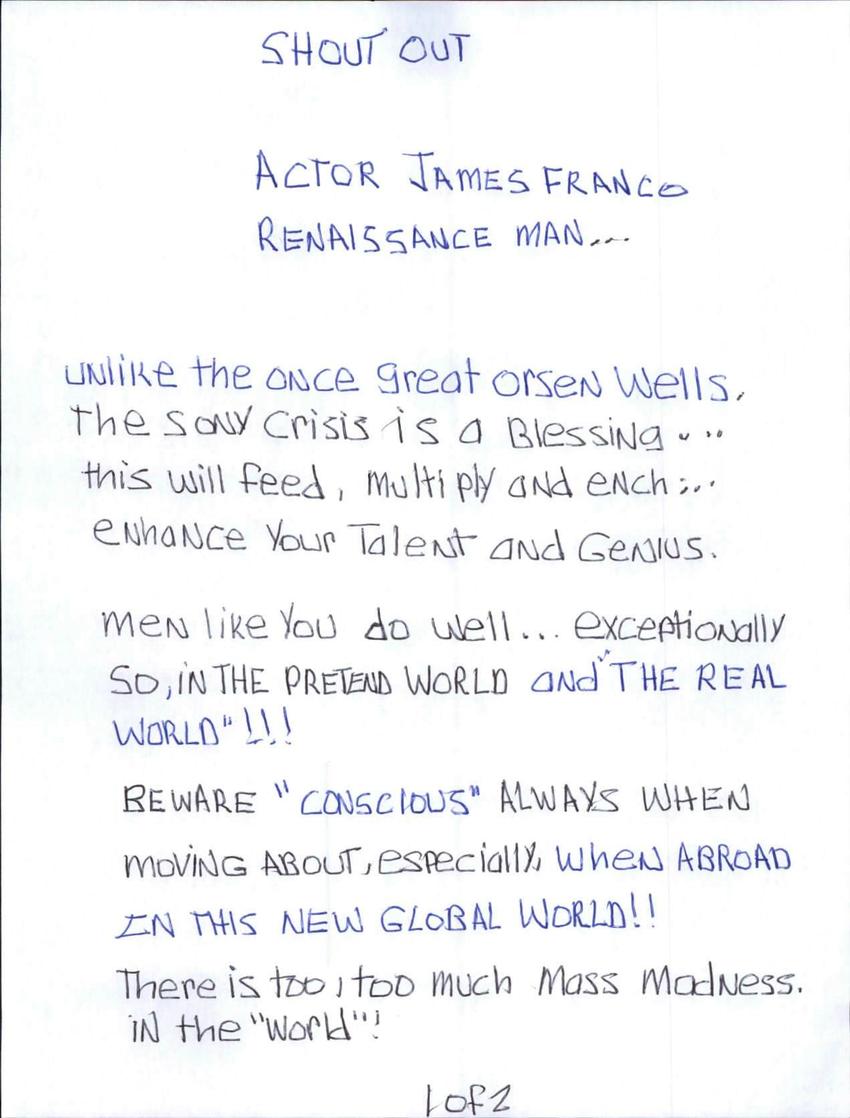 SHOUT OUT
ACTOR JAMES FRANCO
RENAISSANCE MAN...
UNlike the ONCE great Orsen Wells,
the SONY Crisis is a Blessing...
this will feed, multiply and ench...
enhance Your Talent and Genius.
men like You do well... exceptionally
SO, IN THE PRETEND WORLD and "THE REAL
WORLD"!!!
BEWARE "CONSCIOUS" ALWAYS WHEN
MOVING ABOUT, especially, when ABROAD
IN THIS NEW GLOBAL WORLD!!
There is too, too much Mass Madness.
IN the "World"!
1 of 2